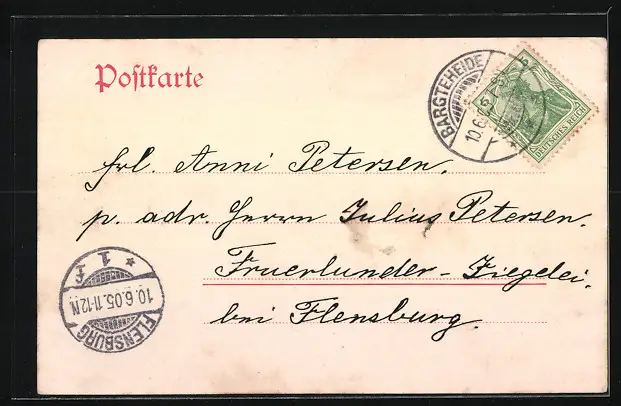 Postkarte
BARGTEHEIDE
10.6.05
5
DEUTSCHES REICH
Frl. Anni Petersen.
p. adr. Herrn Julius Petersen.
Fruerlunder-Ziegelei.
bei Flensburg.
* 1 f
10.6.05.11-12N
FLENSBURG